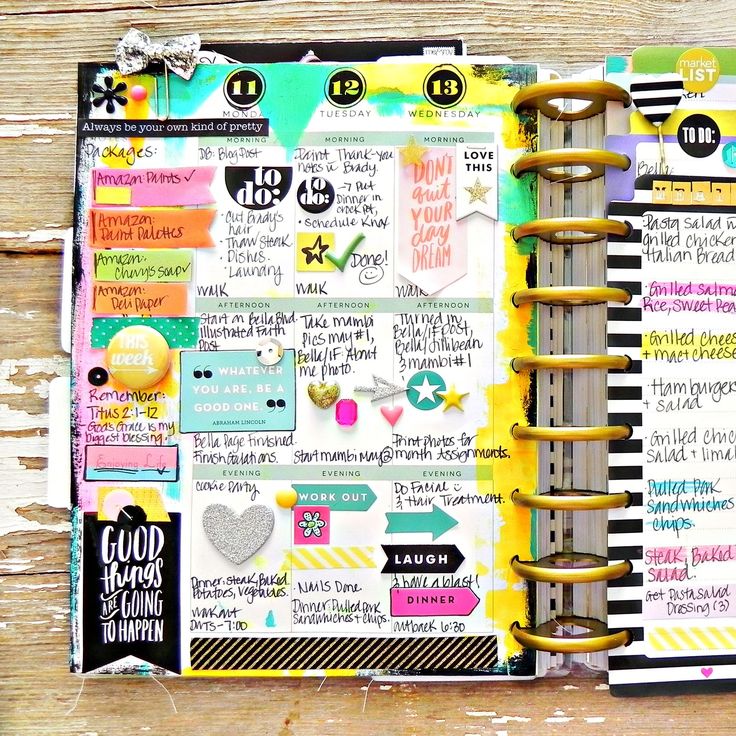 Always be your own kind of pretty
Packages:
Amazon: Paints ✓
Amazon:
Paint Palettes
Amazon:
Chewy's Soap ✓
Amazon:
Deli Paper
THIS
week
Remember:
Titus 2:1-12
God's Grace is my
biggest blessing.
Enjoying Life
GOOD
things
ARE GOING
TO HAPPEN
11
MONDAY
MORNING
DB: Blog Post
to
do:
• Cut Brady's
hair
• Thaw Steak
• Dishes
• Laundry
WALK
AFTERNOON
Start on Bella Blvd
Illustrated Faith
Post
WHATEVER
YOU ARE, BE A
GOOD ONE.
ABRAHAM LINCOLN
Bella Page Finished.
EVENING
Cookie Party
Dinner: Steak, Baked
Potatoes, vegetables.
Workout
DWTS - 7:00
12
TUESDAY
MORNING
Paint Thank-you
notes w Brady.
to
do:
→ Put
Dinner in
crock pot,
• Schedule Knox
Done!
WALK
AFTERNOON
Take mambi
pics may #1,
Bella/IF. About
me photo.
Start mambi May@
EVENING
WORK OUT
• Nails Done
Dinner: Pulled Pork
Sandwhiches + chips.
13
WEDNESDAY
MORNING
DON'T
quit
YOUR
day
DREAM
LOVE
THIS
WALK
AFTERNOON
Turned in
Bella/IF post,
Bella/Jillibean
& mambi #1
Print Photos for
month Assignments.
EVENING
Do Facial
& Hair Treatment.
LAUGH
& have a blast!
DINNER
Outback 6:30
market
LIST
TO DO:
Bella:
Pasta Salad w
Grilled chicken
Italian Bread
• Grilled Salmon
Rice, Sweet Peas
• Grilled Cheese
+ mac + cheese
• Hamburgers
+ salad
• Grilled Chic
Salad +
Pulled Pork
Sandwhiches
chips.
Steak, Baked
Salad.
Get Pasta Salad
Dressing (3)